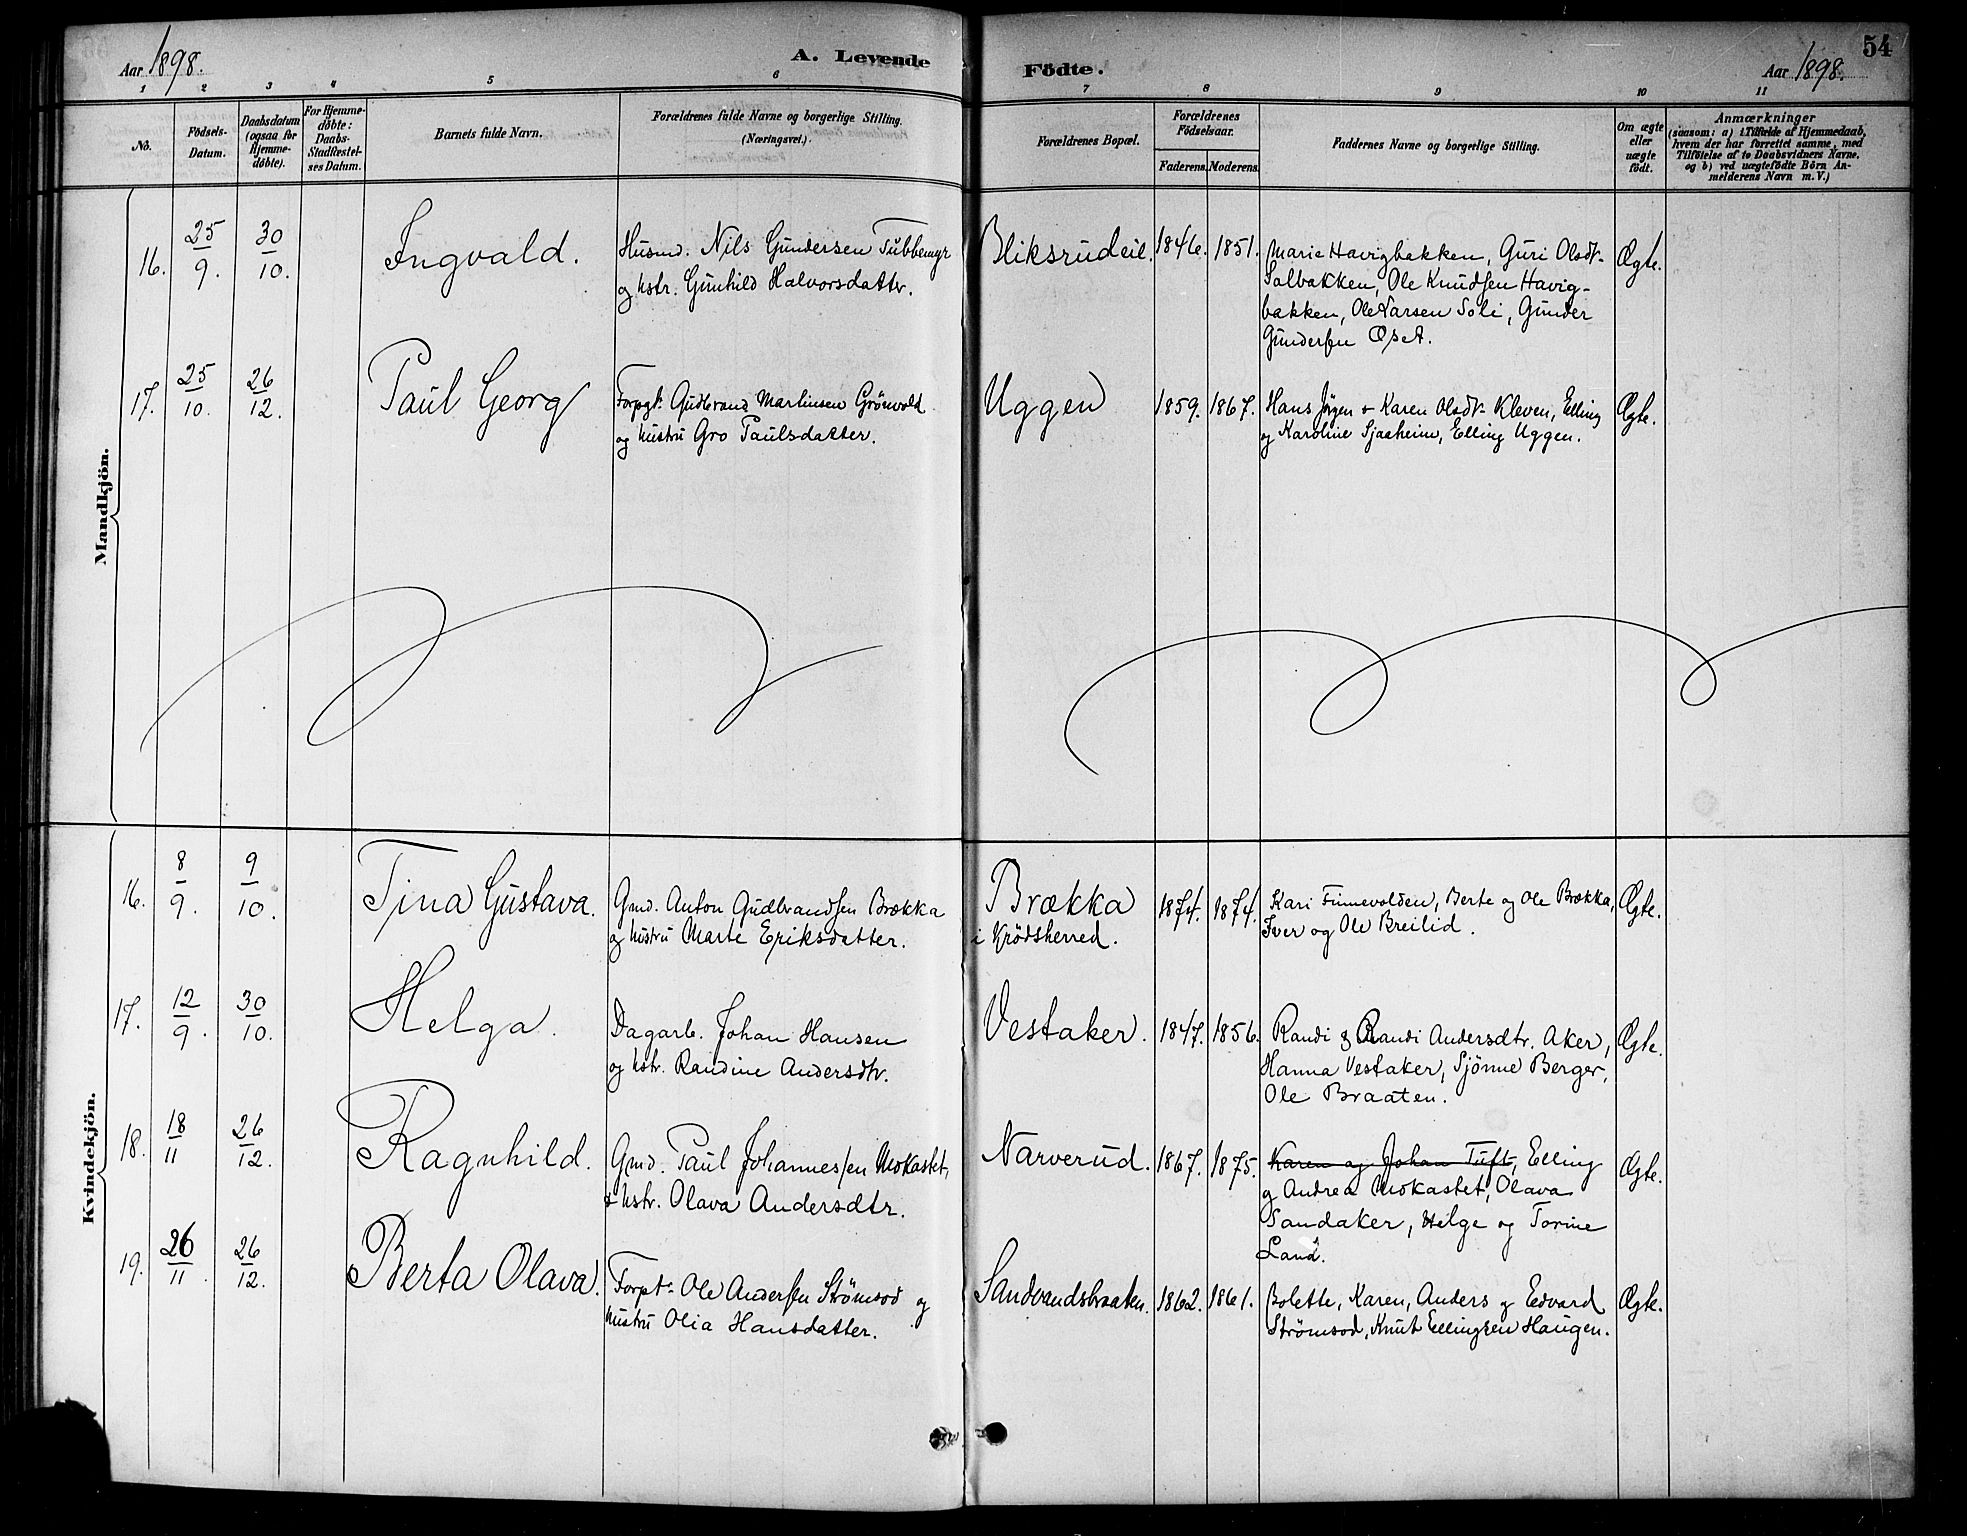 54
Aar 1898.
A. Levende
Födte.
Aar 1898.
1 2 3 4 5 6 7 8 9 10 11
No.
Födsels-
Datum.
Daabsdatum
(ogsaa for
Hjemme-
döbte).
For Hjemme-
döbte:
Daabs-
Stadfæstel-
ses Datum.
Barnets fulde Navn.
Forældrenes fulde Navne og borgerlige Stilling.
(Næringsvei.)
Forældrenes Bopæl.
Forældrenes
Födselsaar.
Faderens. Moderens.
Faddernes Navne og borgerlige Stilling.
Om ægte
eller
uægte
födt.
Anmærkninger
(saasom: a) i Tilfælde af Hjemmedaab,
hvem der har forrettet samme, med
Tilföielse af to Daabsvidners Navne,
og b) ved uægtefödte Börn An-
melderens Navn m. V.)
Mandkjön.
16. 25/9. 30/10. Ingvald.
Husmd. Nils Gundersen Tubbemyr
og hstr. Gunhild Halvorsdatter.
Bliksrudeil. 1846. 1851.
Marie Havigbakken, Guri Olsdt-
Salbakken, Ole Knudsen Havig-
bakken, Ole Larsen Soli, Gunder
Gundersen Opset.
Ægte.
17. 25/10. 26/12. Paul Georg
Forpgt. Gudbrand Martinsen Grönvold
og hustru Gro Paulsdatter.
Uggen 1859. 1867.
Hans Jörgen & Karen Olsdt- Kleven, Elling
og Karoline Sjaaheim, Elling Uggen.
Ægte.
Kvindekjön.
16. 8/9. 9/10. Tina Gustava.
Gmd. Anton Gudbrandsen Brækka
og hustru Marte Eriksdatter.
Brækka
i Krödsherred.
1874. 1874.
Kari Finnevolden, Berte og Ole Brækka,
Iver og Ole Breilid.
Ægte.
17. 12/9. 30/10. Helga.
Dagarb. Johan Hansen
og hstr. Randine Andersdtr.
Vestaker. 1847. 1856.
Randi & Randi Andersdtr. Aker,
Hanna Vestaker, Sjönne Berger,
Ole Braaten.
Ægte.
18. 18/11 26/12. Ragnhild.
Gmd. Paul Johannessen Mokastet,
& hstr. Olava Andersdtr.
Narverud. 1867. 1875.
Karen og Johan Tuft, Elling
og Andrea Mokastet, Olava
Sandaker, Helge og Torine
Land.
Ægte.
19. 26/11. 26/12. Berta Olava.
Forpt- Ole Andersen Strömsod og
hustru Olia Hansdatter.
Sandvandsbraaten. 1862. 1861.
Bolette, Karen, Anders og Edvard
Strömsod, Knut Ellingsen Haugen.
Ægte.